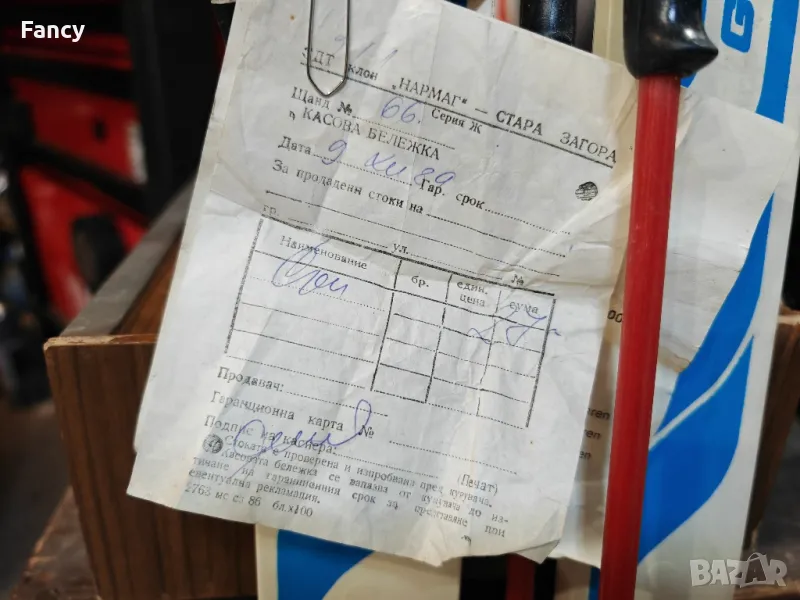 Fancy
ЗДТ клон „НАРМАГ“ — СТАРА ЗАГОРА
Щанд № 66. Серия Ж
КАСОВА БЕЛЕЖКА
Дата 9 XII 89 Гар. срок
За продадени стоки на
гр. ул. №
Наименование бр. един. цена сума
27
Продавач:
Гаранционна карта №
Подпис на касиера:
(Печат)
Стоката е проверена и изпробвана пред купувача.
Касовата бележка се запазва от купувача до из-
тичане на гаранционния срок за предявяване при
евентуална рекламация.
2763 мс ез 86 бл.х100
G
BAZAR